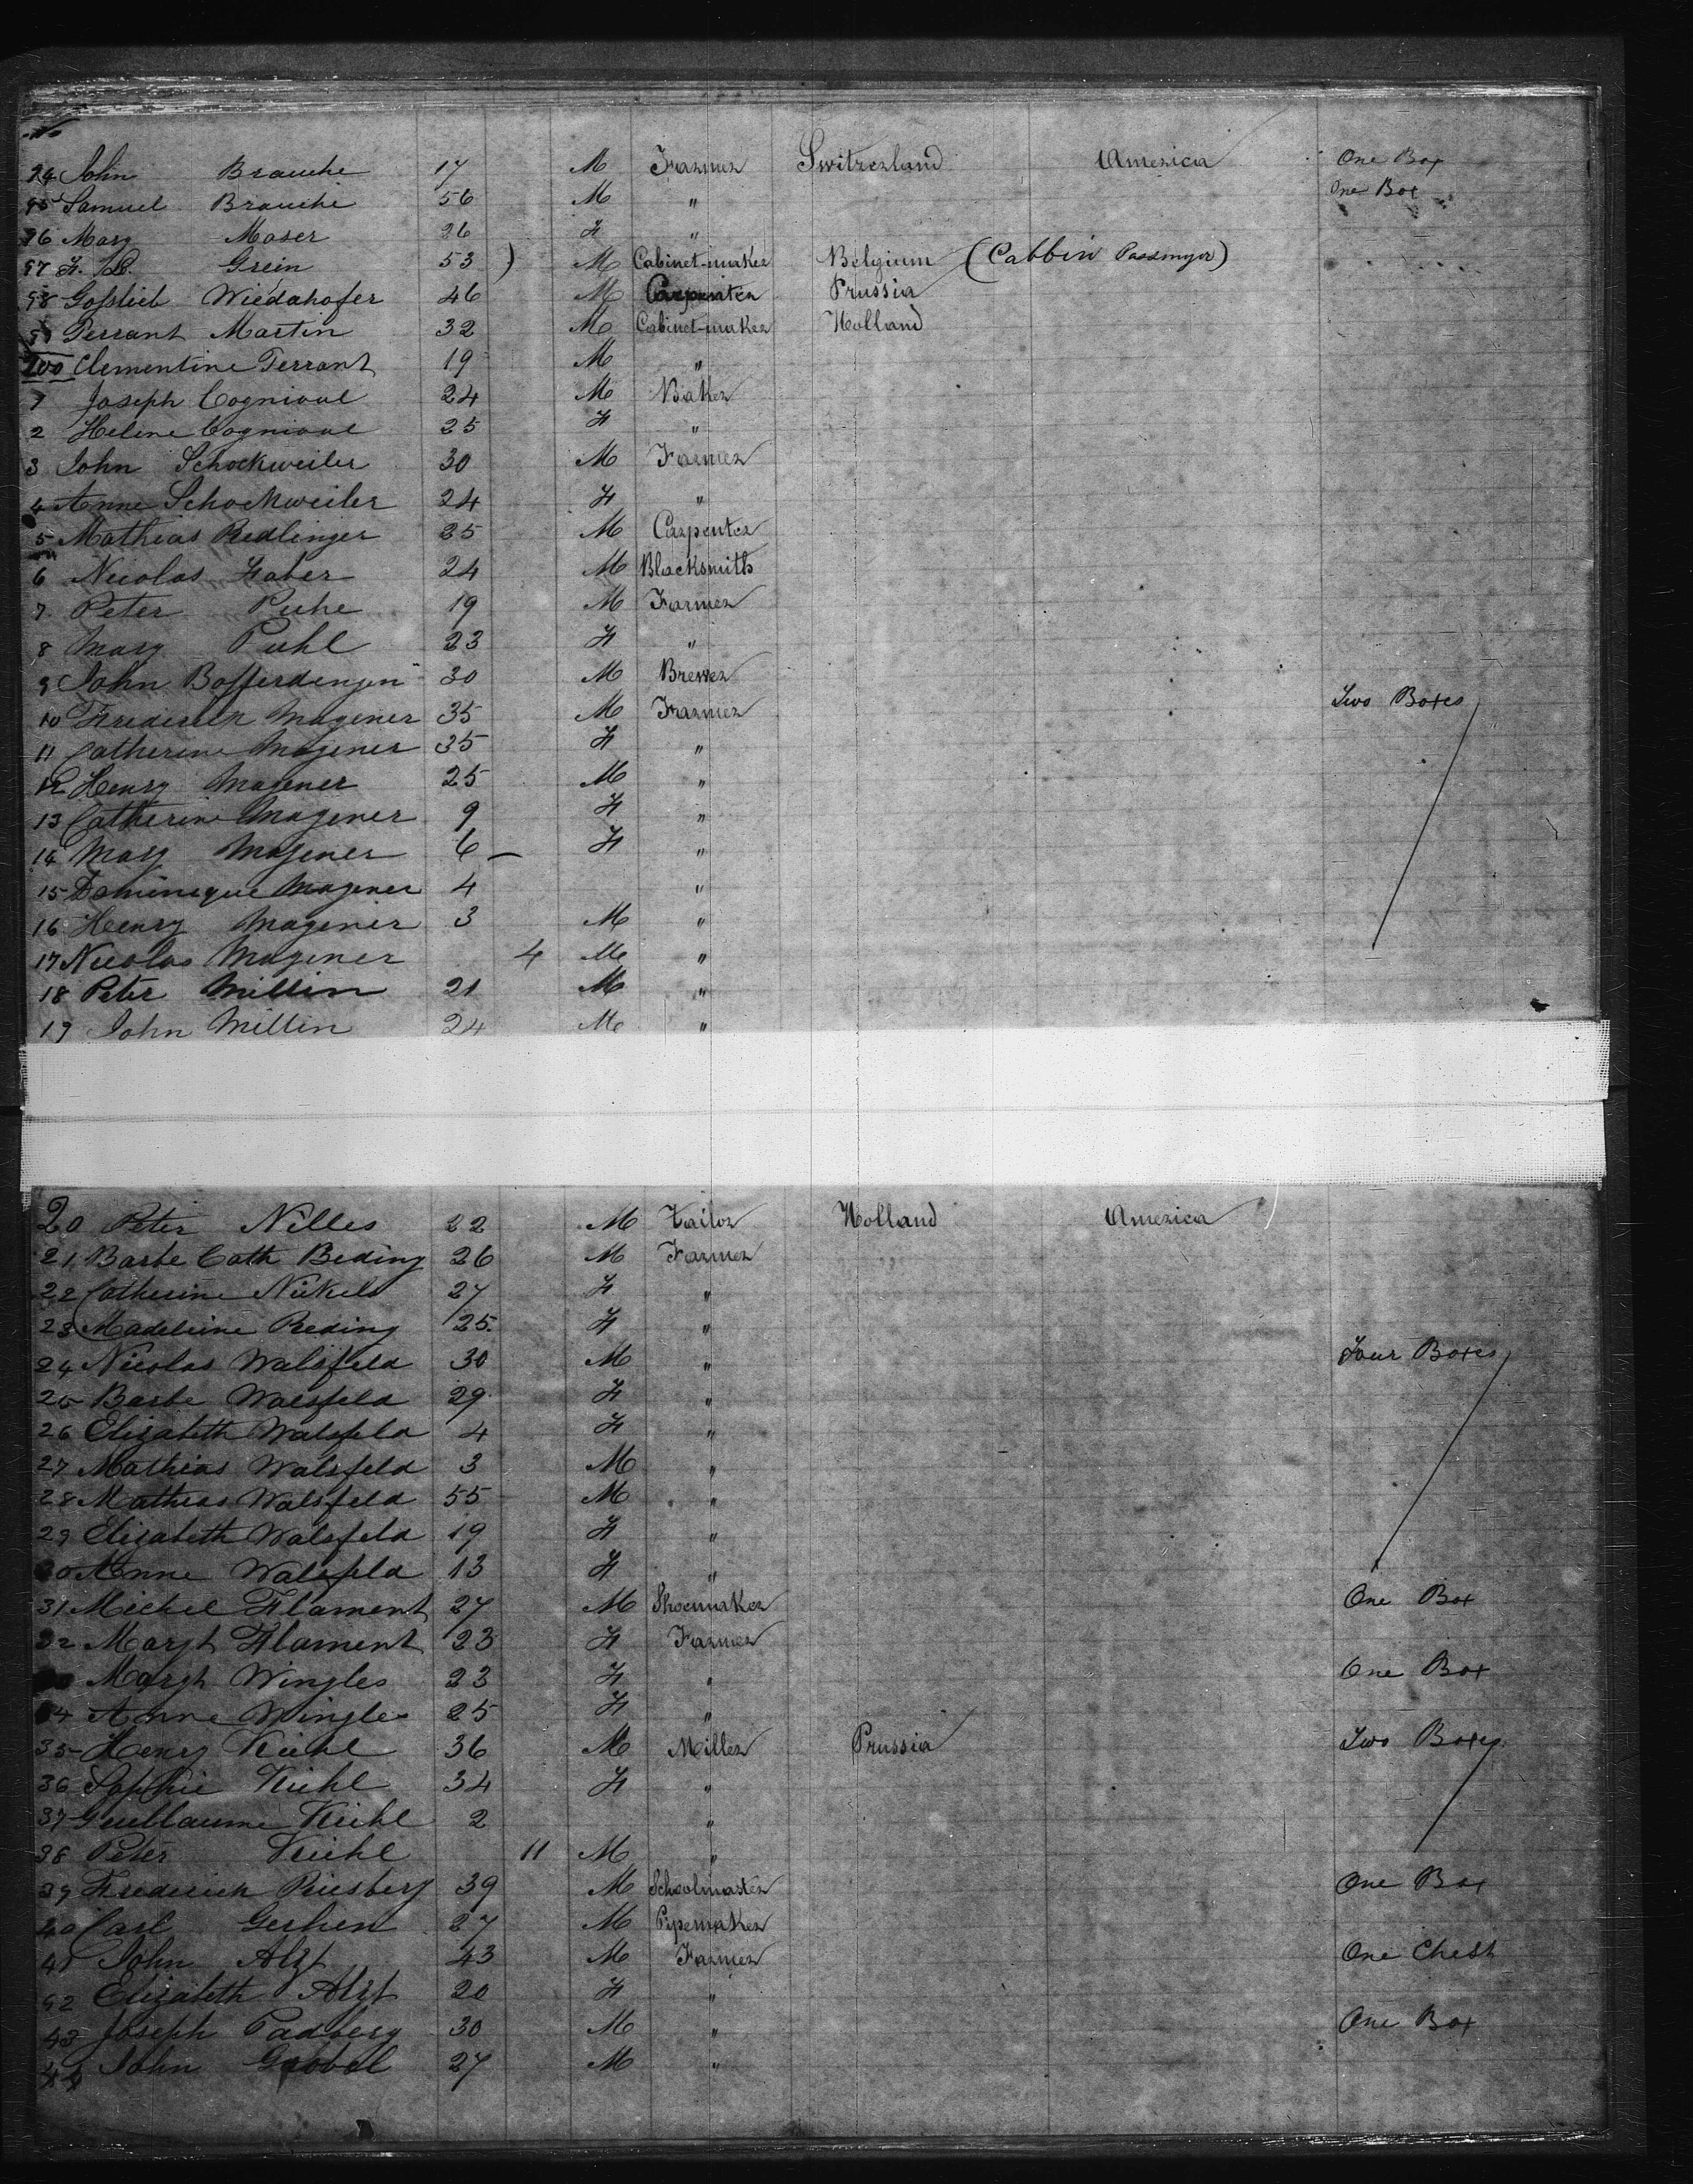 No
94 John Brauchi 17 M Farmer Switzerland America One Box
95 Samuel Brauchi 56 M " One Box
96 Mary Moser 26 F "
97 F. B. Grein 53 ) M Cabinet-maker Belgium (Cabbin Passenger)
98 Gosslieb Wiedahofer 46 M Carpenter Prussia
99 Perrant Martin 32 M Cabinet-maker Holland
100 Clementine Perrant 19 M "
1 Joseph Cognioul 24 M Baker
2 Heline Cognioul 25 F "
3 John Schockweiler 30 M Farmer
4 Anne Schockweiler 24 F "
5 Mathias Redlinger 25 M Carpenter
6 Nicolas Faber 24 M Blacksmith
7. Peter Puhe 19 M Farmer
8 Mary Puhl 23 F "
9 John Bofferdingen 30 M Brewer
10 Frederick Magener 35 M Farmer Two Boxes
11 Catherine Magener 35 F "
12 Henry Magener 25 M "
13 Catherine Magener 9 F "
14 Mary Magener 6 F "
15 Dominique Magener 4 "
16 Henry Magener 3 M "
17 Nicolas Magener 4 M "
18 Peter Millin 21 M "
19 John Millin 24 M "
20 Peter Nilles 22 M Tailor Holland America
21 Barbe Cath Reding 26 M Farmer
22 Catherine Nickels 27 F "
23 Madeleine Reding 25. F "
24 Nicolas Walsfeld 30 M " Four Boxes
25 Barbe Walsfeld 29 F "
26 Elizabeth Walsfeld 4 F "
27 Mathias Walsfeld 3 M "
28 Mathias Walsfeld 55 M "
29 Elizabeth Walsfeld 19 F "
30 Anne Walsfeld 13 F "
31 Michel Flament 27 M Shoemaker One Box
32 Margt Flament 23 F Farmer
Margt Wingles 23 F " One Box
34 Anne Wingles 25 F "
35 Henry Kiehl 36 M Miller Prussia Two Boxes
36 Sophie Kiehl 34 F "
37 Guillaume Kiehl 2 "
38 Peter Kiehl 11 M "
39 Frederick Riesberg 39 M Schoolmaster One Box
40 Carl Gerhen 27 M Pipemaker
41 John Alzt 43 M Farmer One Chest
42 Elizabeth Alzt 20 F "
43 Joseph Padberg 30 M " One Box
44 John Grobel 27 M "